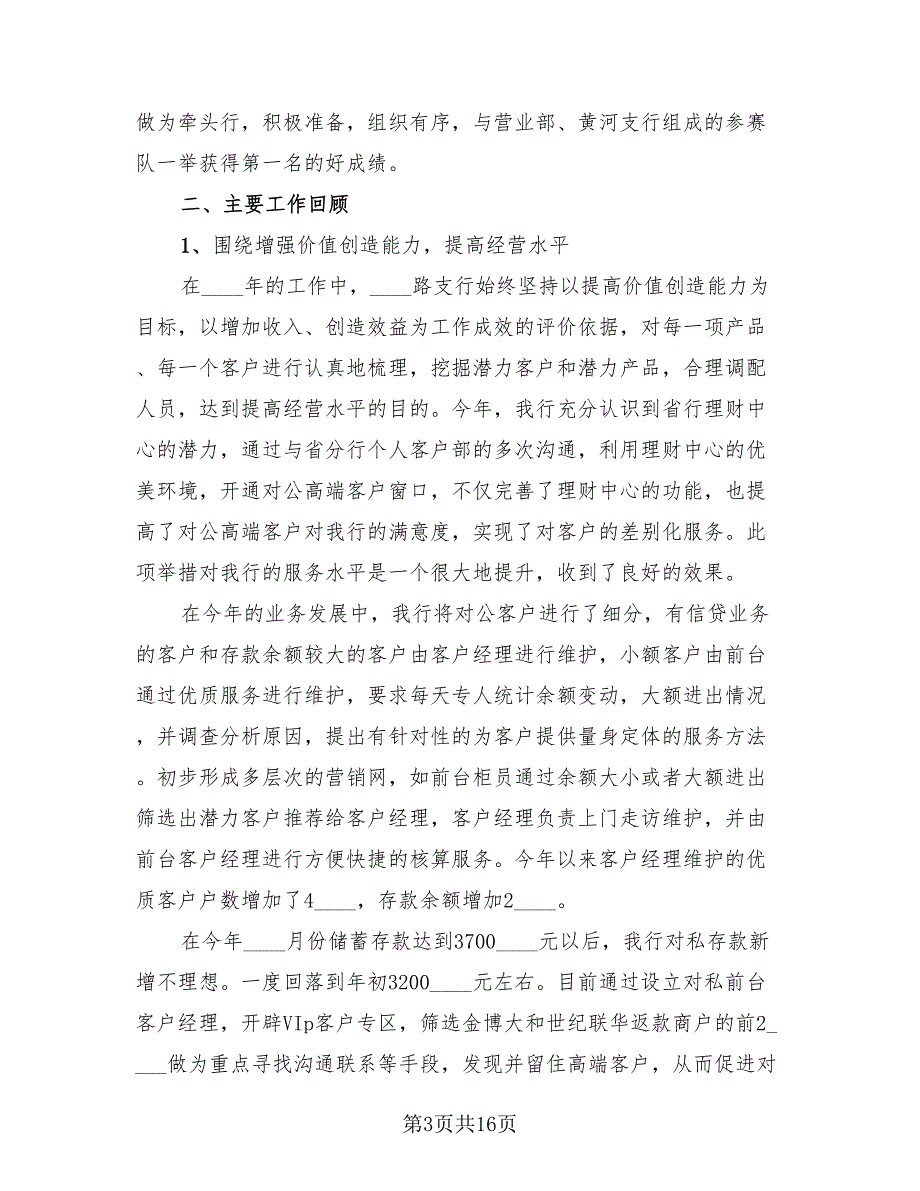 做为牵头行，积极准备，组织有序，与营业部、黄河支行组成的参赛
队一举获得第一名的好成绩。
二、主要工作回顾
1、围绕增强价值创造能力，提高经营水平
在____年的工作中，____路支行始终坚持以提高价值创造能力为
目标，以增加收入、创造效益为工作成效的评价依据，对每一项产品
、每一个客户进行认真地梳理，挖掘潜力客户和潜力产品，合理调配
人员，达到提高经营水平的目的。今年，我行充分认识到省行理财中
心的潜力，通过与省分行个人客户部的多次沟通，利用理财中心的优
美环境，开通对公高端客户窗口，不仅完善了理财中心的功能，也提
高了对公高端客户对我行的满意度，实现了对客户的差别化服务。此
项举措对我行的服务水平是一个很大地提升，收到了良好的效果。
在今年的业务发展中，我行将对公客户进行了细分，有信贷业务
的客户和存款余额较大的客户由客户经理进行维护，小额客户由前台
通过优质服务进行维护，要求每天专人统计余额变动，大额进出情况
，并调查分析原因，提出有针对性的为客户提供量身定体的服务方法
。初步形成多层次的营销网，如前台柜员通过余额大小或者大额进出
筛选出潜力客户推荐给客户经理，客户经理负责上门走访维护，并由
前台客户经理进行方便快捷的核算服务。今年以来客户经理维护的优
质客户户数增加了4____，存款余额增加2____。
在今年____月份储蓄存款达到3700____元以后，我行对私存款新
增不理想。一度回落到年初3200____元左右。目前通过设立对私前台
客户经理，开辟VIp客户专区，筛选金博大和世纪联华返款商户的前2_
___做为重点寻找沟通联系等手段，发现并留住高端客户，从而促进对
第3页共16页